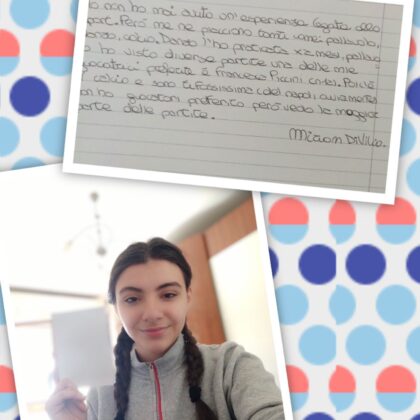 Io non ho mai avuto un'esperienza legata allo
sport. Però me ne piacciono tanti come: pallavolo,
danza, calcio. Danza l'ho praticata x2 mesi, pallav
ho visto diverse partite una delle mie
giocatrici preferite è Francesca Piccini
calcio e sono tifosissima del napoli ovviamente
non ho giocatori preferiti però vedo la maggior
parte delle partite.
Miriam